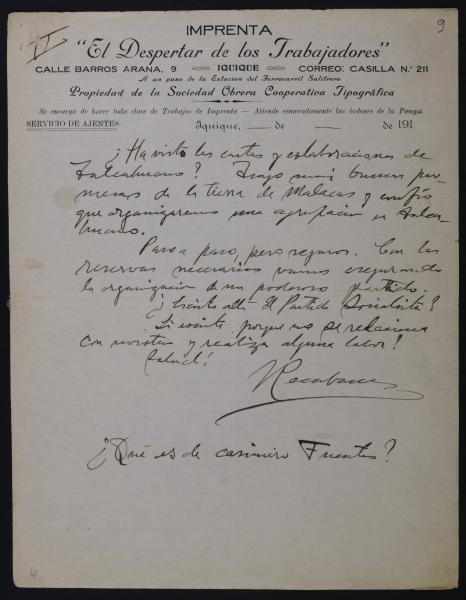 9
VI
IMPRENTA
"El Despertar de los Trabajadores"
CALLE BARROS ARANA, 9 IQUIQUE CORREO: CASILLA N.° 211
A un paso de la Estacion del Ferrocarril Salitrero
Propiedad de la Sociedad Obrera Cooperativa Tipográfica
Se encarga de hacer toda clase de Trabajos de Imprenta — Atiende esmeradamente las órdenes de la Pampa
SERVICIO DE AJENTES Iquique, de de 191
¿Ha visto las cartas y colaboraciones de
Talcahuano? Tengo mui buenas pro-
mesas de la tierra de y confío
que organizaremos una agrupacion en Talca-
huano.
Paso a paso, pero seguros. Con las
reservas necesarias vamos asegurando
la organizacion de un poderoso partido.
¿Existe allá el Partido Socialista?
Si existe porque no se relaciona
con nosotros y realiza alguna labor!
Salud!
Recabarren
¿Qué es de Casimiro Fuentes?
6